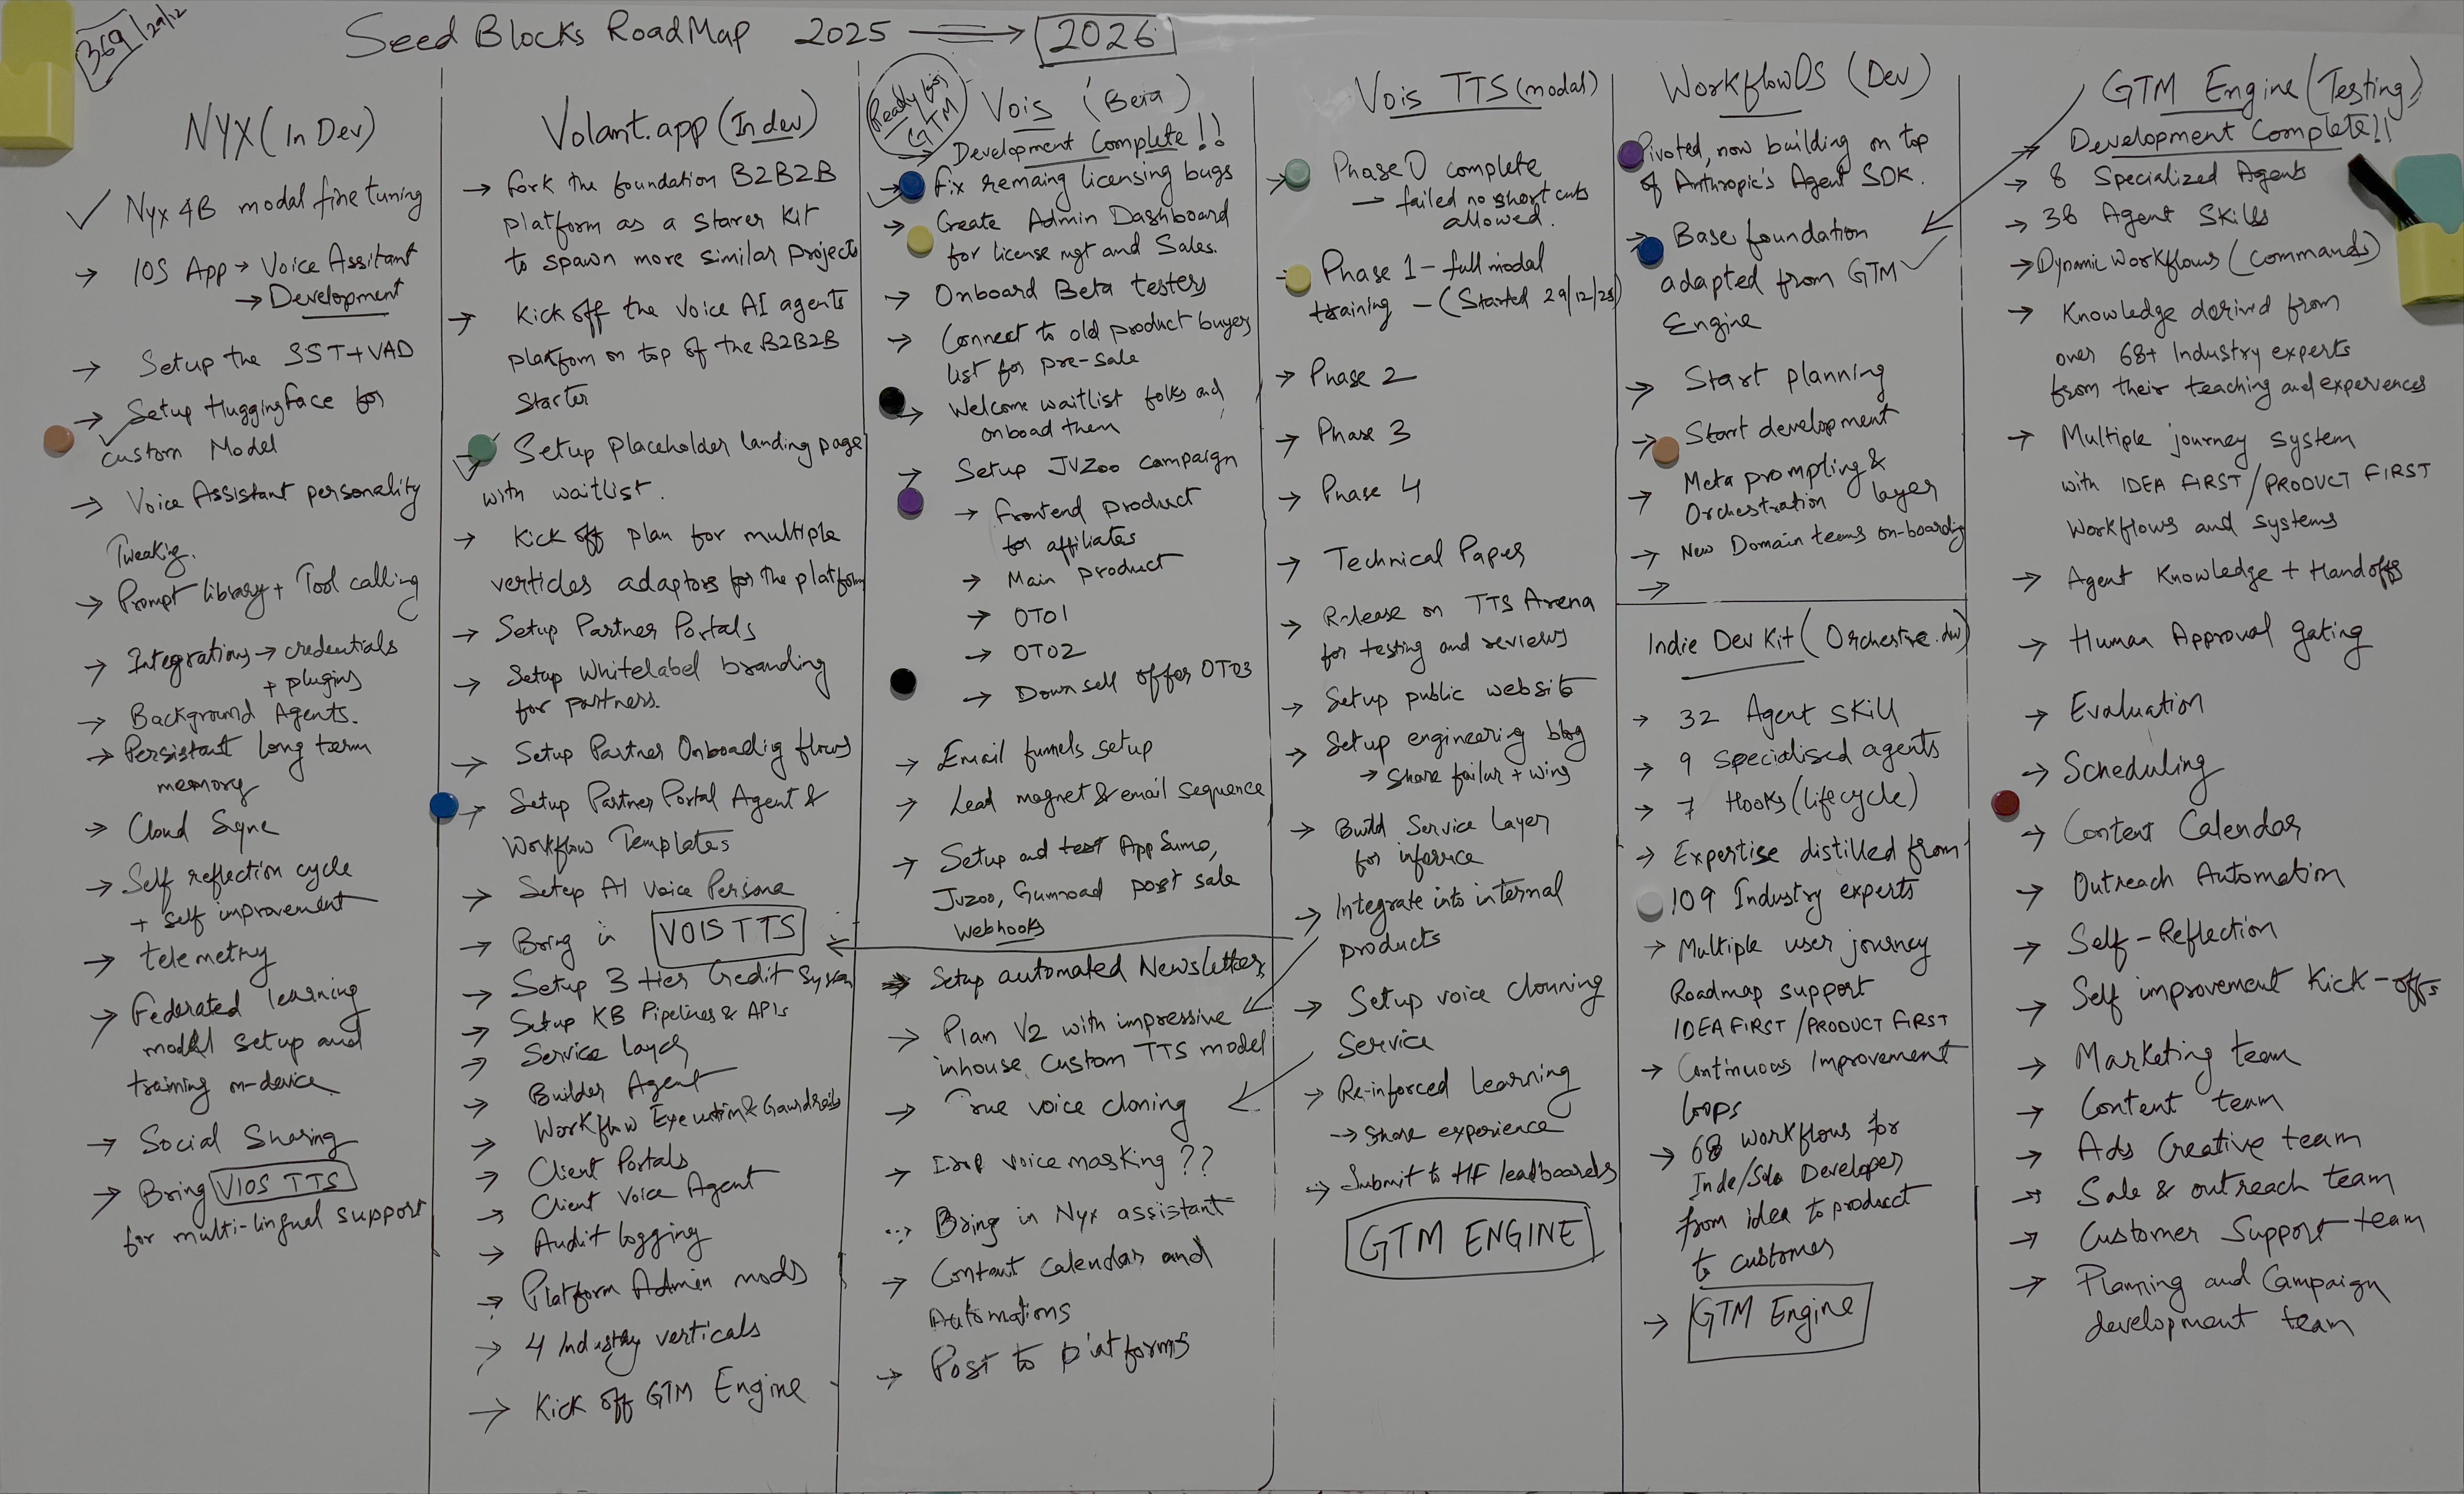 369
29/12
Seed Blocks RoadMap 2025 → 2026
NYX (In Dev)
✓ Nyx 4B modal fine tuning
→ IOS App → Voice Assitant
→ Development
→ Setup the SST + VAD
→ Setup Huggingface for
custom Model
→ Voice Assistant personality
Tweaking.
→ Prompt library + Tool calling
→ Integrations → credentials
+ plugins
→ Background Agents.
→ Persistant long term
memory
→ Cloud Sync
→ Self reflection cycle
+ self improvement
→ telemetry
→ Federated learning
model setup and
training on-device
→ Social Sharing
→ Bring VIOS TTS
for multi-lingual support
Volant.app (In dev)
→ Fork the foundation B2B2B
platform as a starer kit
to spawn more similar projects
→ Kick off the Voice AI agents
platfom on top of the B2B2B
Starter
→ Setup placeholder landing page
with waitlist.
→ Kick off plan for multiple
verticles adaptors for the platform
→ Setup Partner Portals
→ Setup Whitelabel branding
for partners.
→ Setup Partner Onboadig flows
→ Setup Partner Portal Agent &
Workflow Templates
→ Setup AI Voice Persona
→ Bring in VOIS TTS
→ Setup 3 tier Credit System
→ Setup KB Pipelines & APIs
→ Service Layer
→ Builder Agent
→ Workflow Execution &
→ Client Portals
→ Client Voice Agent
→ Audit logging
→ Platform Admin mods
→ 4 Industry verticals
→ Kick off GTM Engine
Ready for
GTM
Vois (Beta)
→ Development Complete!!
→ Fix remaing licensing bugs
→ Create Admin Dashboard
for license mgt and Sales.
→ Onboard Beta testers
→ Connect to old product buyers
list for pre-sale
→ Welcome waitlist folks and
onboad them
→ Setup JVZoo campaign
→ Frontend product
for affiliates
→ Main product
→ OTO1
→ OTO2
→ Down sell offer OTO3
→ Email funnels setup
→ Lead magnet & email sequence
→ Setup and test AppSumo,
Jvzoo, Gumroad post sale
webhooks
→ Setup automated Newsletter
→ Plan V2 with impressive
inhouse custom TTS model
→ True voice cloning
→ voice masking ??
→ Bring in Nyx assistant
→ Content Calendar and
Automations
→ Post to platforms
Vois TTS (modal)
→ Phase 0 complete
→ failed no short cuts
allowed.
→ Phase 1 - full modal
training - (Started 29/12/25)
→ Phase 2
→ Phase 3
→ Phase 4
→ Technical Paper
→ Release on TTS Arena
for testing and reviews
→ Setup public website
→ Setup engineering blog
→ Share failur + wins
→ Build Service Layer
for
→ Integrate into internal
products
→ Setup voice clonning
Service
→ Re-inforced learning
→ Share experience
→ Submit to HF leadboards
GTM ENGINE
WorkflowOS (Dev)
Pivoted, now building on top
of Anthropic's Agent SDK.
→ Base foundation
adapted from GTM ✓
Engine
→ Start planning
→ Start development
→ Meta prompting &
Orchestration layer
→ New Domain teams on-boarding
→
Indie Dev Kit (Orchestre.dev)
→ 32 Agent skill
→ 9 specialised agents
→ 7 Hooks (lifecycle)
→ Expertise distilled from
109 Industry experts
→ Multiple user journey
Roadmap support
IDEA FIRST / PRODUCT FIRST
→ Continuous Improvement
loops
→ 68 workflows for
Inde/Solo Developer
from idea to product
to customer
→ GTM Engine
GTM Engine (Testing)
→ Development Complete!!
→ 8 Specialized Agents
→ 38 Agent Skills
→ Dynamic Workflows (commands)
→ Knowledge derived from
over 68+ Industry experts
from their teaching and experiences
→ Multiple journey system
with IDEA FIRST / PRODUCT FIRST
Workflows and systems
→ Agent Knowledge + Handoffs
→ Human Approval gating
→ Evaluation
→ Scheduling
→ Content Calendar
→ Outreach Automation
→ Self-Reflection
→ Self improvement Kick-offs
→ Marketing team
→ Content team
→ Ads Creative team
→ Sale & outreach team
→ Customer Support team
→ Planning and Campaign
development team